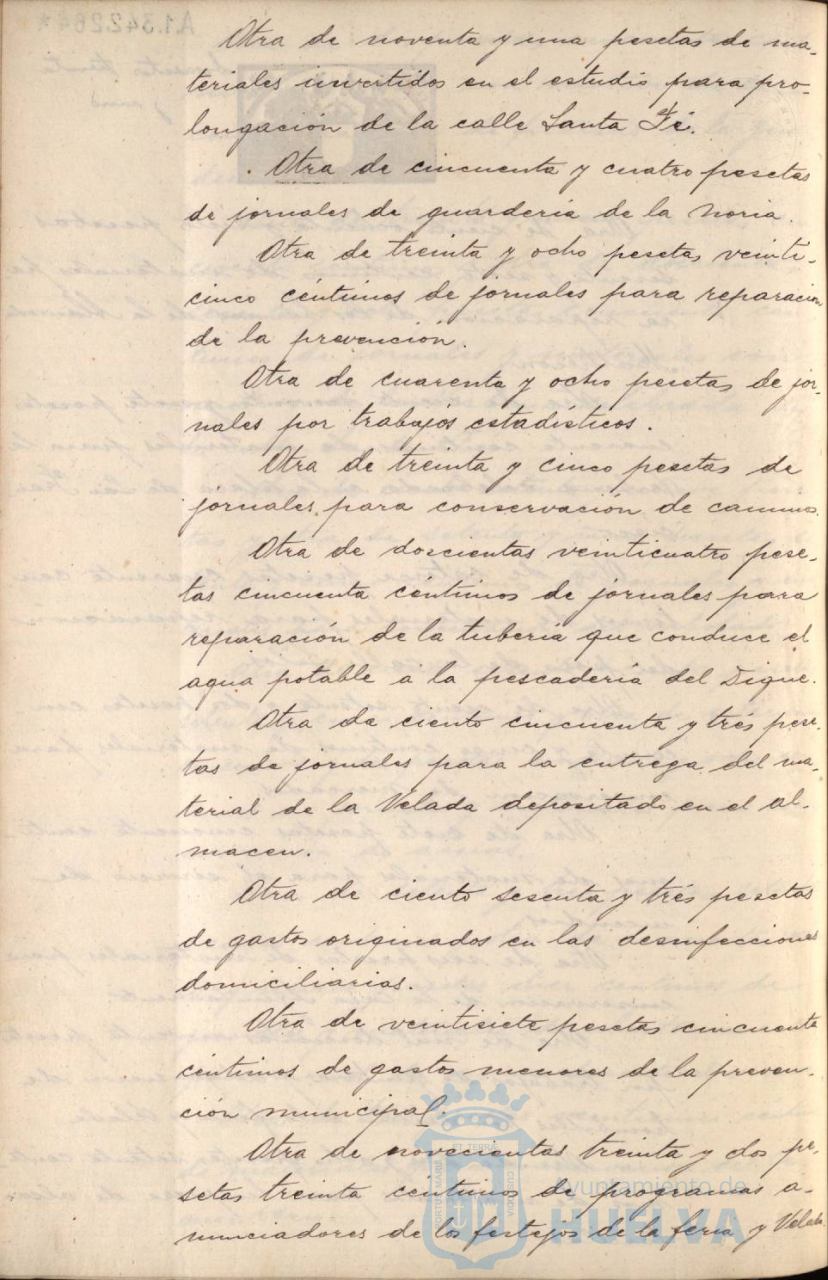 Otra de noventa y una pesetas de ma-
teriales invertidos en el estudio para pro-
longación de la calle Santa Fé.
Otra de cincuenta y cuatro pesetas
de jornales de guardería de la Noria.
Otra de treinta y ocho pesetas veinti-
cinco céntimos de jornales para reparacion
de la prevención.
Otra de cuarenta y ocho pesetas de jor-
nales por trabajos estadísticos.
Otra de treinta y cinco pesetas de
jornales para conservación de caminos.
Otra de doscientas veinticuatro pese-
tas cincuenta céntimos de jornales para
reparación de la tuberia que conduce el
agua potable á la pescadería del Dique.
Otra de ciento cincuenta y trés pese-
tas de jornales para la entrega del ma-
terial de la Velada depositado en el al-
macen.
Otra de ciento sesenta y trés pesetas
de gastos originados en las desinfecciones
domiciliarias.
Otra de veintisiete pesetas cincuenta
céntimos de gastos menores de la preven-
ción municipal.
Otra de novecientas treinta y dos pe-
setas treinta céntimos de programas a-
nunciadores de los festejos de la feria y Velada
Ayuntamiento de
HUELVA